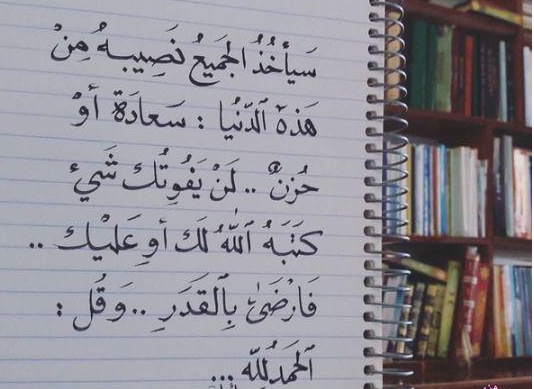 سَيأْخُذُ الجَميعُ نَصِيبهُ مِنْ
هَذهْ ٱلدّنْيا : سَعادَة أوْ
حُزنٌ .. لَنْ يَفُوتُك شَيْءٌ
كتَبَهُ ٱللّهُ لَكَ أوِ عَليْك ..
فَارْضَىٰ بِٱلقدَرِ .. وَقُل :
ٱلحَمدُ للّه ...